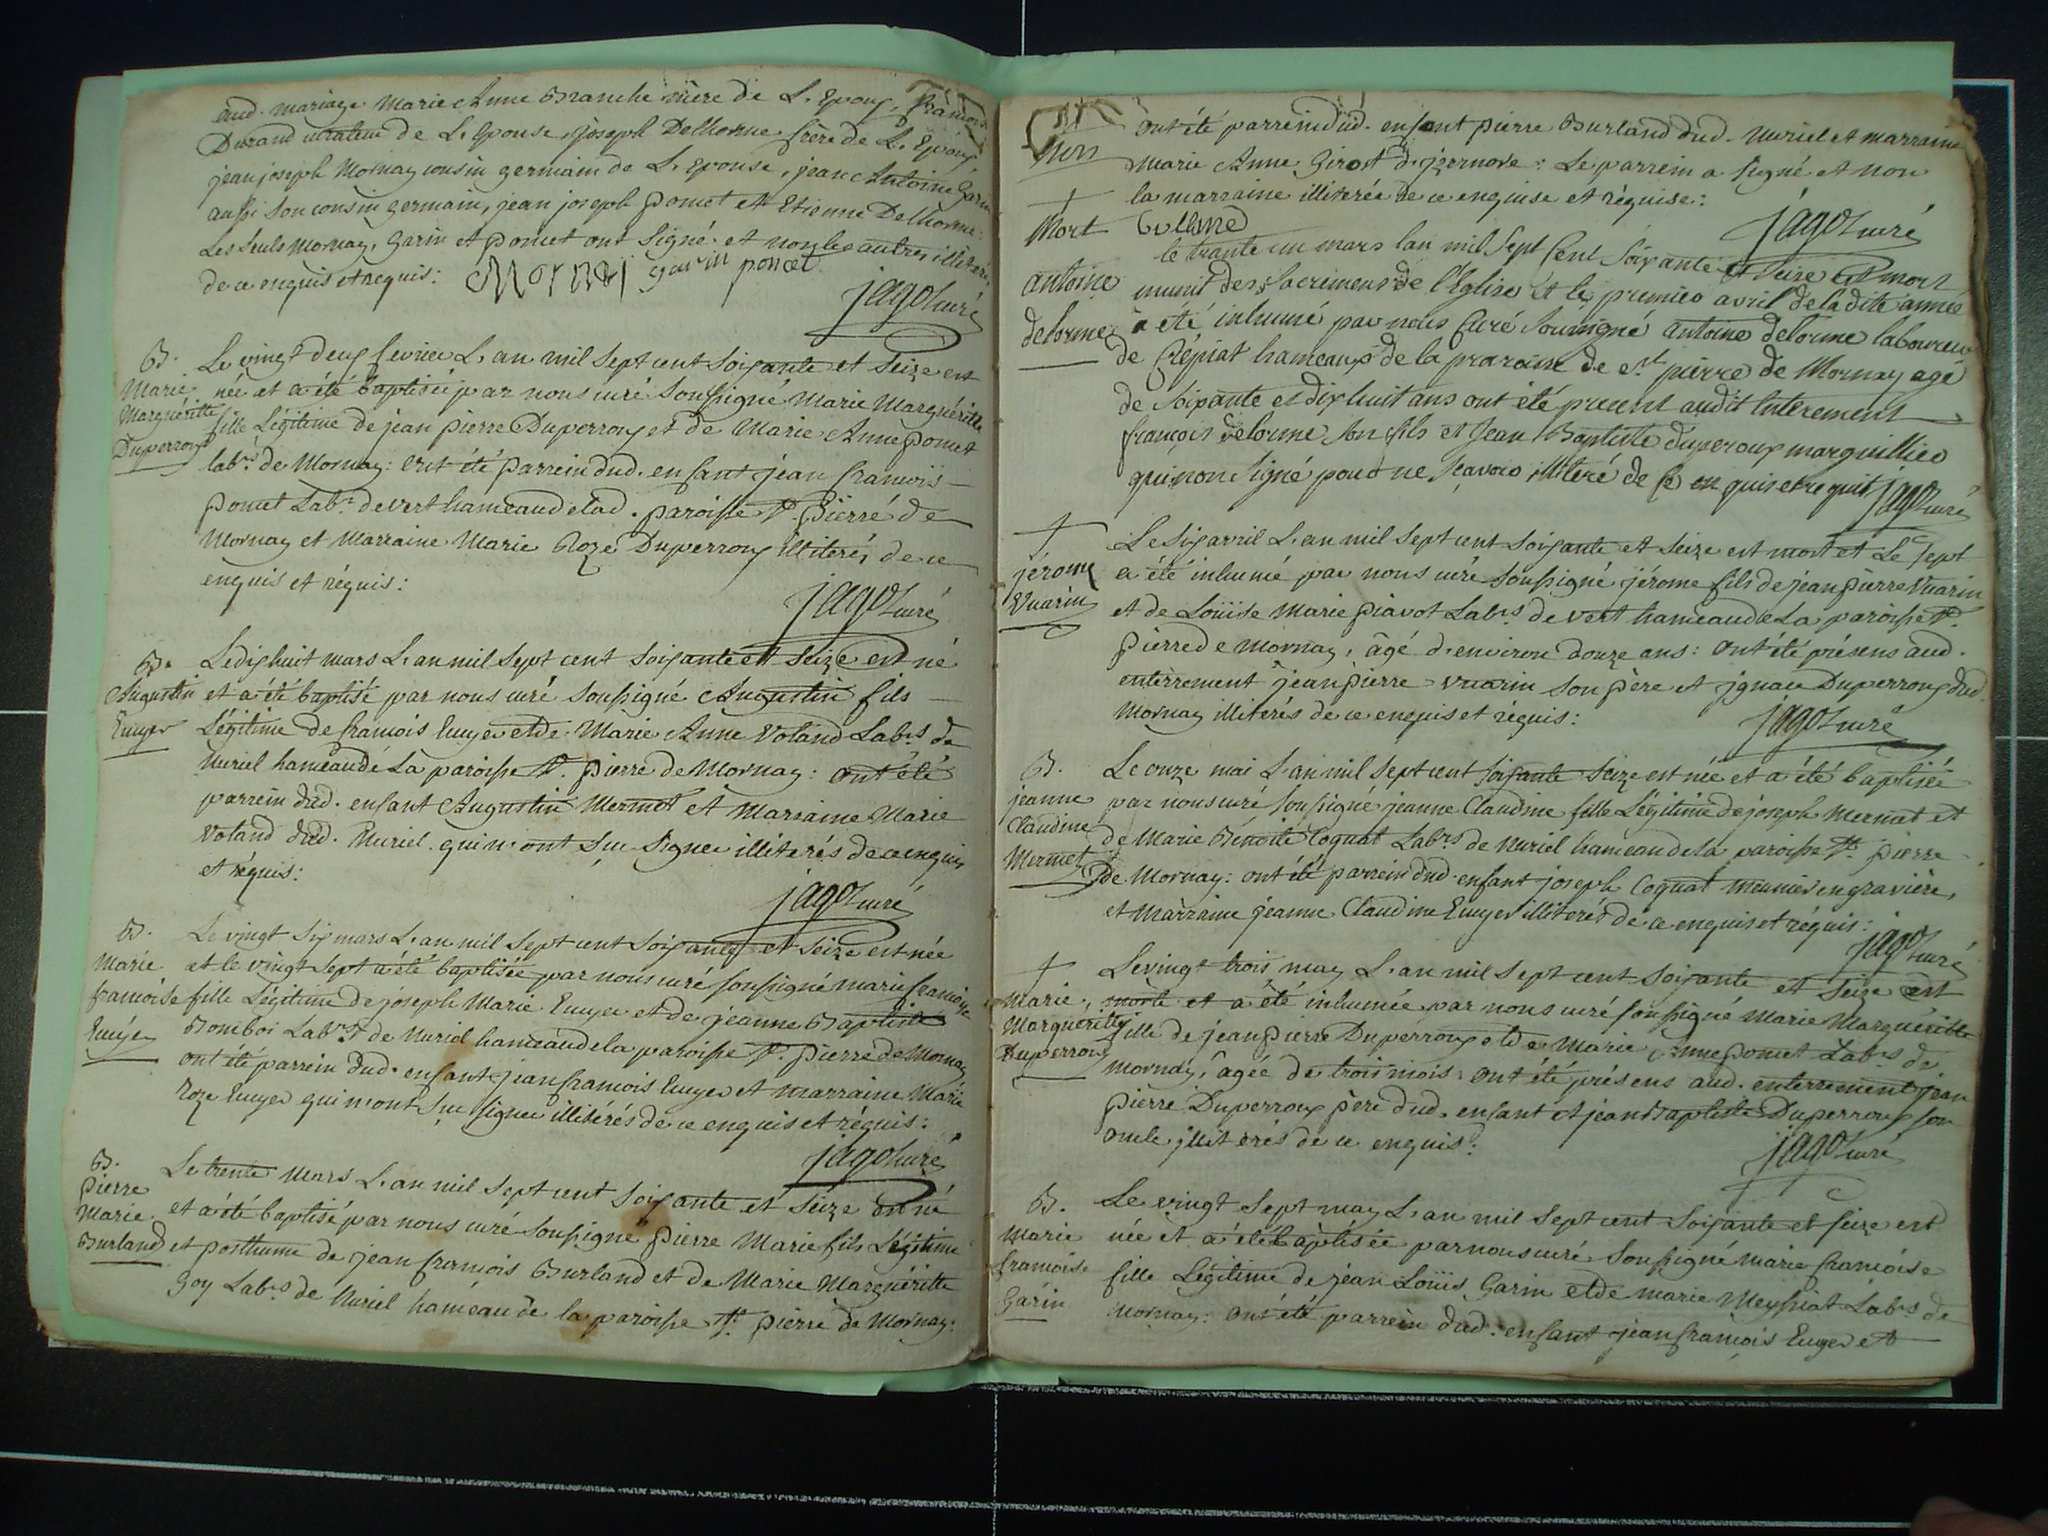 aud. mariage Marie Anne Branche mère de L'Epoux, francois
Durand curateur de L'Epouse, joseph Delhorme frère de L'Epoux
jean joseph Mornay cousin germain de L'Epouse, jean Antoine Garin
aussi son cousin germain, jean joseph poncet et Etienne Delhorme:
Les seuls Mornay, Garin et poncet ont signé. et non les autres illiterés
de ce enquis et requis: Mornay garin poncet
jagot curé
B.
Marie
Marguéritte
Duperroux
Le vingt deux fevrier L'an mil sept cent soixante et seize est
née et a été baptisée par nous curé soussigné Marie Marguéritte
fille Légitime de jean pierre Duperroux et de Marie Anne poncet
labrs de Mornay: ont été parrein dud. enfant jean francois
poncet Labr. de vert hameau de lad. paroisse St. pierre de
Mornay et Marraine Marie Roze Duperroux illiterés de ce
enquis et réquis:
jagot curé
B.
Augustin
Emyer
Le dix huit mars L'an mil sept cent soixante et seize est né
et a été baptisé par nous curé soussigné Augustin fils
Légitime de francois Emyer et de Marie Anne Voland Labrs de
Nuriel hameau de La paroisse St. pierre de Mornay: ont été
parrein dud. enfant Augustin Mermet et Marraine Marie
Voland dud. Nuriel qui n'ont sçu signer illiterés de ce enquis
et réquis:
jagot curé
B.
Marie
francoise
Emyer
Le vingt six mars L'an mil sept cent soixante et seize est née
et le vingt sept a été baptisée par nous curé soussigné marie francoise
fille Légitime de joseph Marie Emyer et de jeanne Baptiste
Bomboi Labrs de Nuriel hameau de la paroisse St. pierre de Mornay
ont été parrein dud. enfant jean francois Emyer et marraine Marie
Roze Emyer qui n'ont sçu signer illitérés de ce enquis et réquis:
jagot curé
B.
pierre
Marie
Burland
Le trente Mars L'an mil sept cent soixante et seize est né
et a été baptisé par nous curé soussigné pierre Marie fils Légitime
et posthume de jean francois Burland et de Marie Marguéritte
Goy Labrs de Nuriel hameau de la paroisse St. pierre de Mornay:
ont été parrein dud. enfant pierre Burland dud. Nuriel et marraine
Marie Anne Girot d'jzernore: Le parrein a signé et non
la marraine illiterée de ce enquise et réquise:
jagot curé
Mort
antoine
delorme
le trante un mars lan mil sept Cent soixante et seize est mort
munit des sacremens de l'Eglise et le premier avril de ladite année
a eté inhumé par nous Curé soussigné antoine delorme laboureur
de Crépiat hameaux de la paroisse de st pierre de Mornay agé
de soixante et dix huit ans ont été present audit Interement
francois delorme son fils et Jean Baptiste duperoux marguillier
qui non signé pour ne sçavoir illiteré de Ce en quis et requit
jagot curé
jérome
Vuarin
Le six avril L'an mil sept cent soixante et seize est mort et Le sept
a été inhumé par nous curé soussigné jérome fils de jean pierre Vuarin
et de Loüise Marie piavot Labrs de vert hameau de La paroisse St.
pierre de Mornay, âgé d'environ douze ans: ont été présens aud.
enterrement jean pierre vuarin son père et jgnace Duperroux dud.
Mornay illiterés de ce enquis et réquis:
jagot curé
B.
jeanne
Claudine
Mermet
Le onze mai L'an mil sept cent soixante seize est née et a été baptisée
par nous curé soussigné jeanne Claudine fille Légitime de joseph Mermet et
de Marie Bénoite Coquat Labrs de Nuriel hameau de la paroisse St. pierre
de Mornay: ont été parrein dud. enfant joseph Coquat meunier en gravière,
et Marraine jeanne Claudine Emyer illiterés de ce enquis et réquis:
jagot curé
Marie
Marguéritte
Duperroux
Le vingt trois may L'an mil sept cent soixante et seize est
morte et a été inhumée par nous curé soussigné Marie Marguéritte
fille de jean pierre Duperroux et de Marie Anne poncet Labrs de
Mornay, âgée de trois mois: ont été présens aud. enterrement jean
pierre Duperroux père dud. enfant et jean Baptiste Duperroux son
oncle jllitérés de ce enquis:
jagot curé
B.
Marie
francoise
Garin
Le vingt sept may L'an mil sept cent soixante et seize est
née et a été baptisée par nous curé soussigné Marie francoise
fille Légitime de jean Loüis Garin et de marie Meyssiat Labrs de
Mornay: ont été parrein dud. enfant jean francois Emyer et